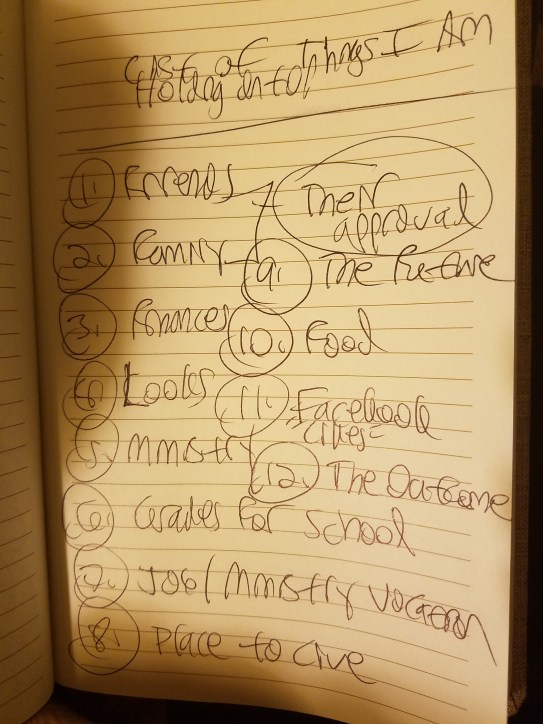 List of Things I Am
Holding onto!
1. Friends
2. Family
Their
approval
3. Finances
4. Looks
5. Ministry
6. Grades for school
7. Job/Ministry vocation
8. Place to Live
9. The Future
10. Food
11. Facebook
Likes
12. The Outcome